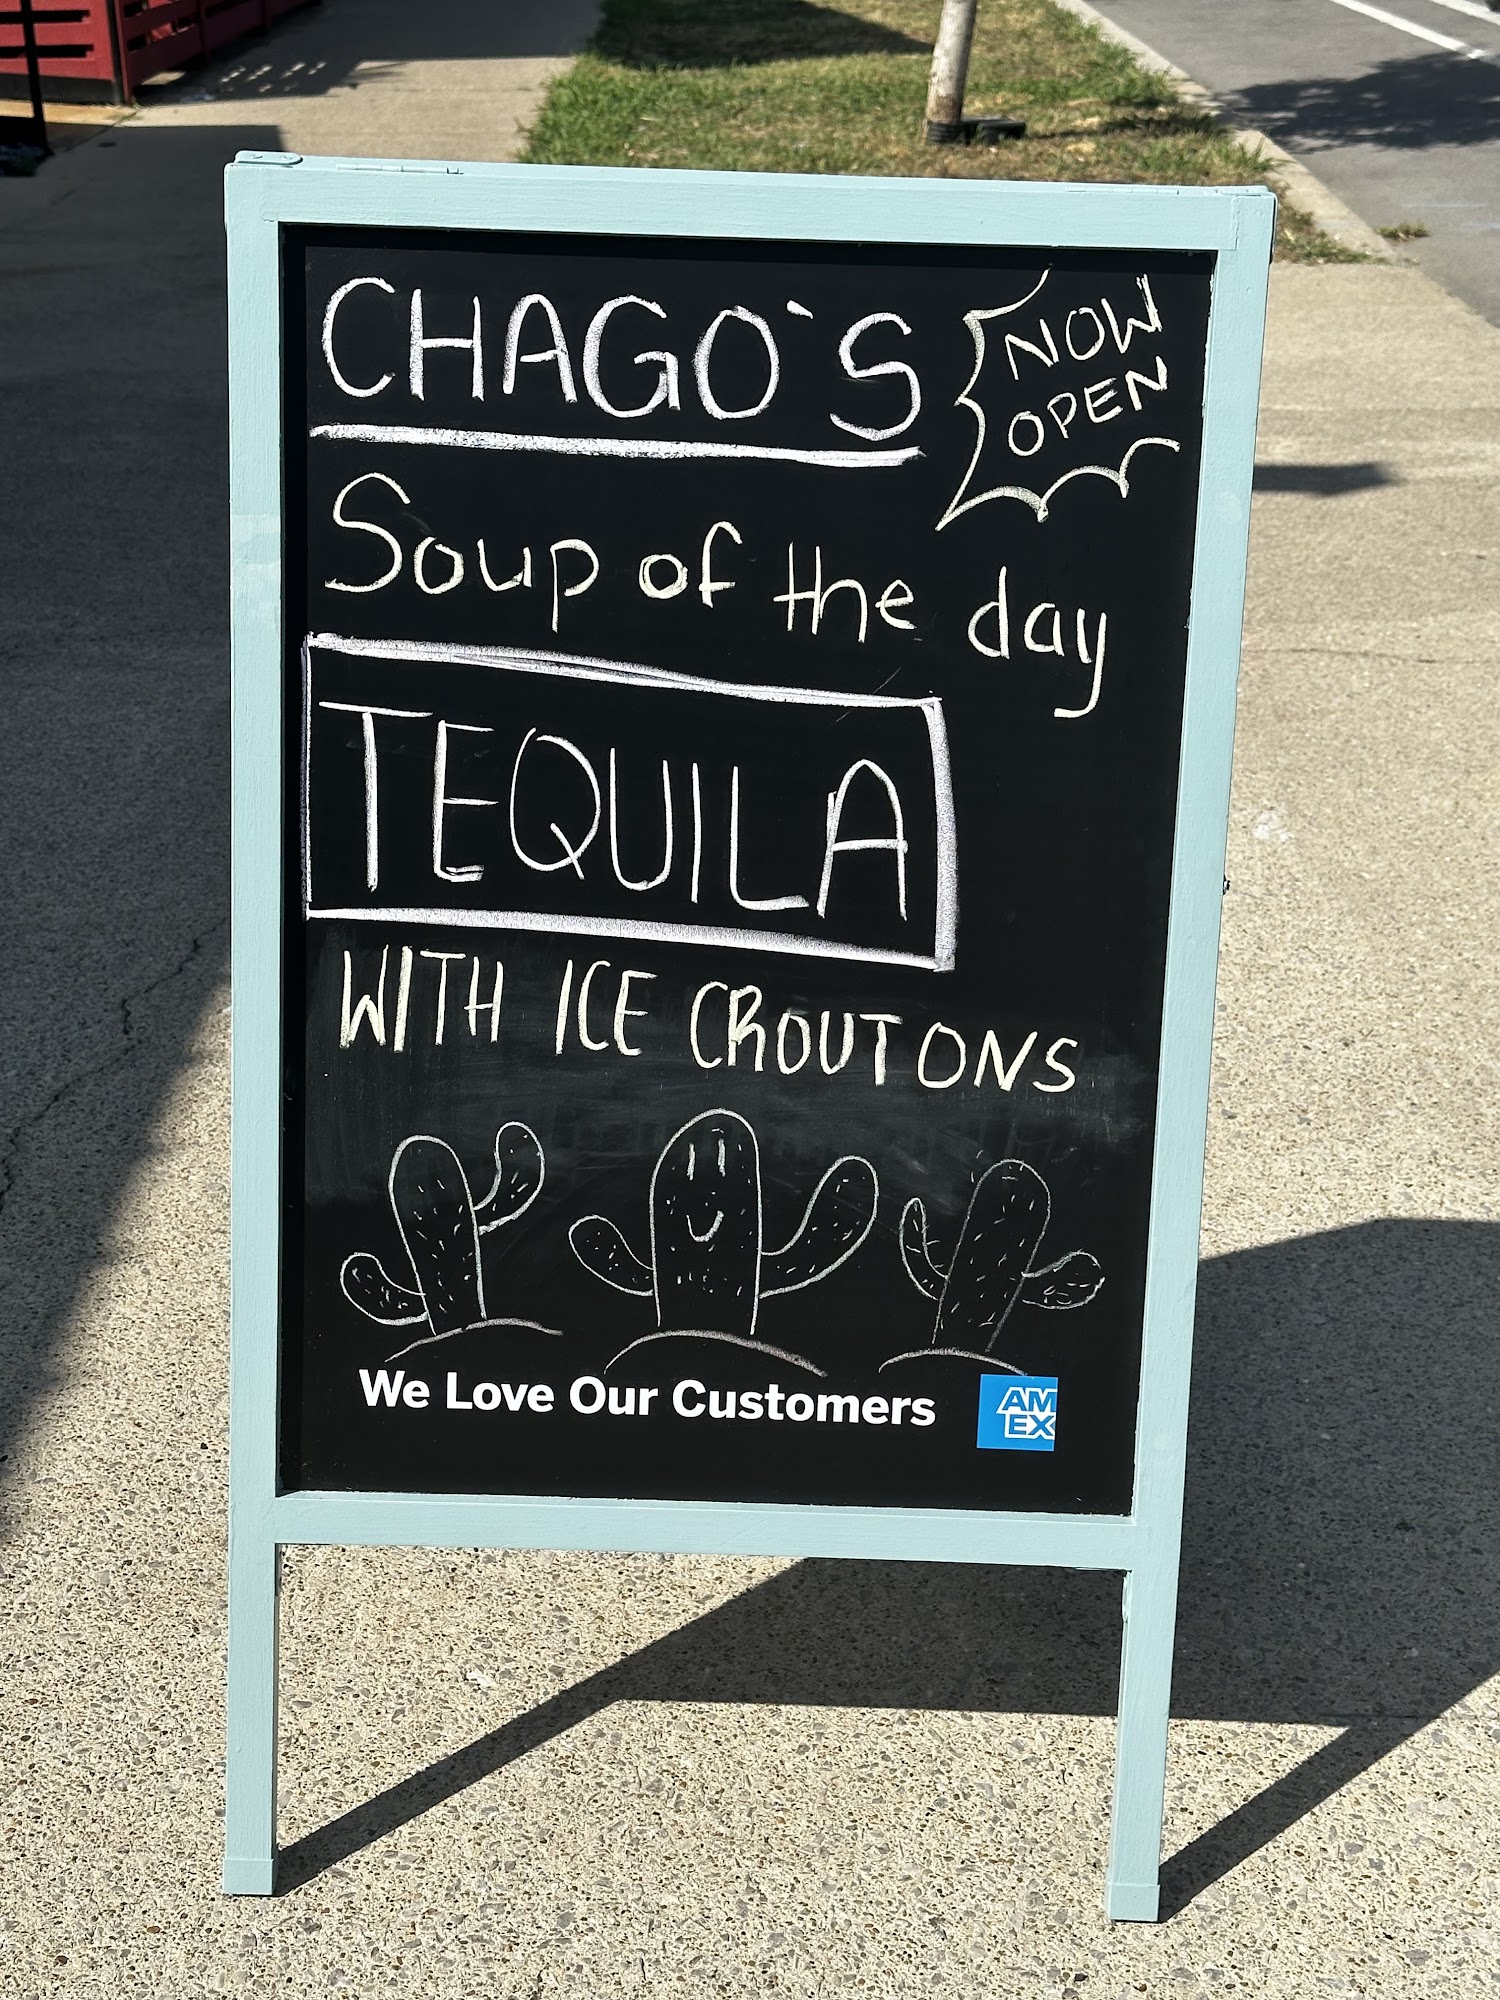 CHAGO`S
NOW
OPEN
Soup of the day
TEQUILA
WITH ICE CROUTONS
We Love Our Customers
AM
EX